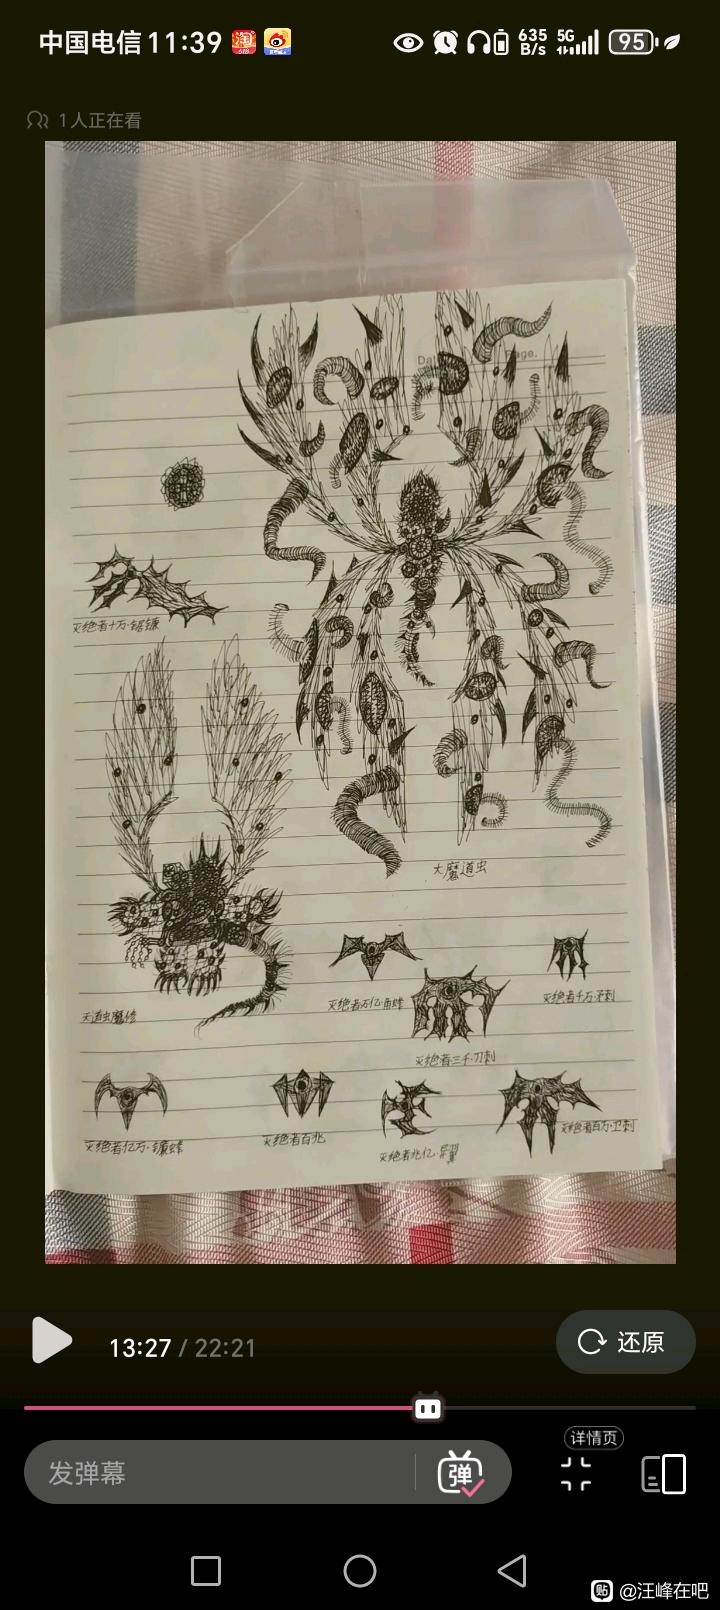 中国电信 11:39
635 B/s
5G
95
1人正在看
灭绝者十万·锯镰
大魔道虫
天道虫魔修
灭绝者万亿·角蜂
灭绝者千万·矛刺
灭绝者三千·刀刺
灭绝者亿万·镰蜂
灭绝者百兆
灭绝者百万·卫刺
灭绝者兆亿·异翼
13:27 / 22:21
还原
详情页
发弹幕
弹
贴 @汪峰在吧